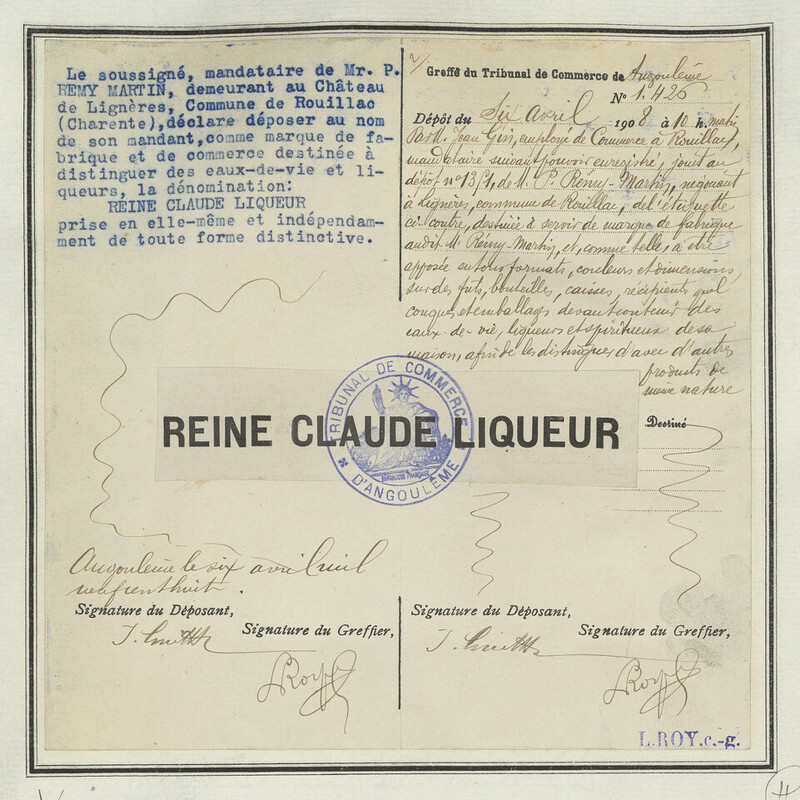 Le soussigné, mandataire de Mr. P.
REMY MARTIN, demeurant au Château
de Lignères, Commune de Rouillac
(Charente), déclare déposer au nom
de son mandant, comme marque de fa-
brique et de commerce destinée à
distinguer des eaux-de-vie et li-
queurs, la dénomination:
REINE CLAUDE LIQUEUR
prise en elle-même et indépendam-
ment de toute forme distinctive.
Greffe du Tribunal de Commerce de Angoulême
N° 1.426
Dépôt du Six Avril 1908 à 10 h. matin
Par M. Jean employé de Commerce à Rouillac,
mandataire suivant pouvoir enregistré, joint au
dépôt n° 1351, de M. P. Rémy-Martin, négociant
à Lignères, commune de Rouillac, de l'étiquette
ci-contre, destinée à servir de marque de fabrique
audit Mr Rémy-Martin, et, comme telle, à être
apposée en tous formats, couleurs et dimensions,
sur des fûts, bouteilles, caisses, récipients quel
conques et emballages devant contenir des
eaux-de-vie, liqueurs et spiritueux de sa
maison, afin de les distinguer d'avec d'autres
produits de
même nature
Destiné
REINE CLAUDE LIQUEUR
TRIBUNAL DE COMMERCE
RÉPUBLIQUE FRANÇAISE
D'ANGOULÊME
Angoulême le six avril mil
neuf cent huit.
Signature du Déposant,
Signature du Greffier,
Roy
Signature du Déposant,
Signature du Greffier,
Roy
L. ROY, c.-g.